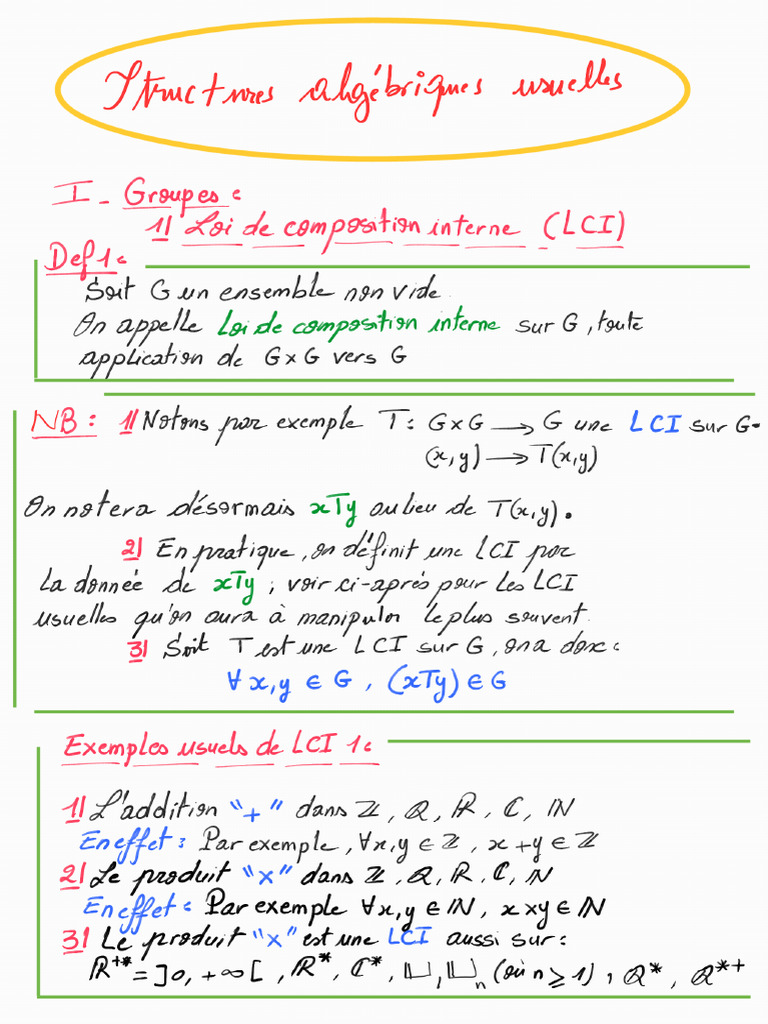 Structures algébriques usuelles
I - Groupes :
1) Loi de composition interne (LCI)
Def 1 :
Soit G un ensemble non vide
On appelle Loi de composition interne sur G, toute
application de G×G vers G
NB : 1) Notons par exemple T : G×G → G une LCI sur G.
(x,y) → T(x,y)
On notera désormais xTy au lieu de T(x,y).
2) En pratique, on définit une LCI par
la donnée de xTy ; voir ci-après pour les LCI
usuelles qu'on aura à manipuler le plus souvent.
3) Soit T est une LCI sur G, on a donc :
∀ x,y ∈ G , (xTy) ∈ G
Exemples usuels de LCI 1 :
1) L'addition "+" dans ℤ, ℚ, ℝ, ℂ, ℕ
En effet : Par exemple, ∀x,y ∈ ℤ , x+y ∈ ℤ
2) Le produit "×" dans ℤ, ℚ, ℝ, ℂ, ℕ
En effet : Par exemple ∀x,y ∈ ℕ, x×y ∈ ℕ
3) Le produit "×" est une LCI aussi sur :
ℝ⁺* = ]0, +∞[ , ℝ*, ℂ*, 𝕌, 𝕌ₙ (où n ≥ 1) , ℚ* , ℚ*⁺